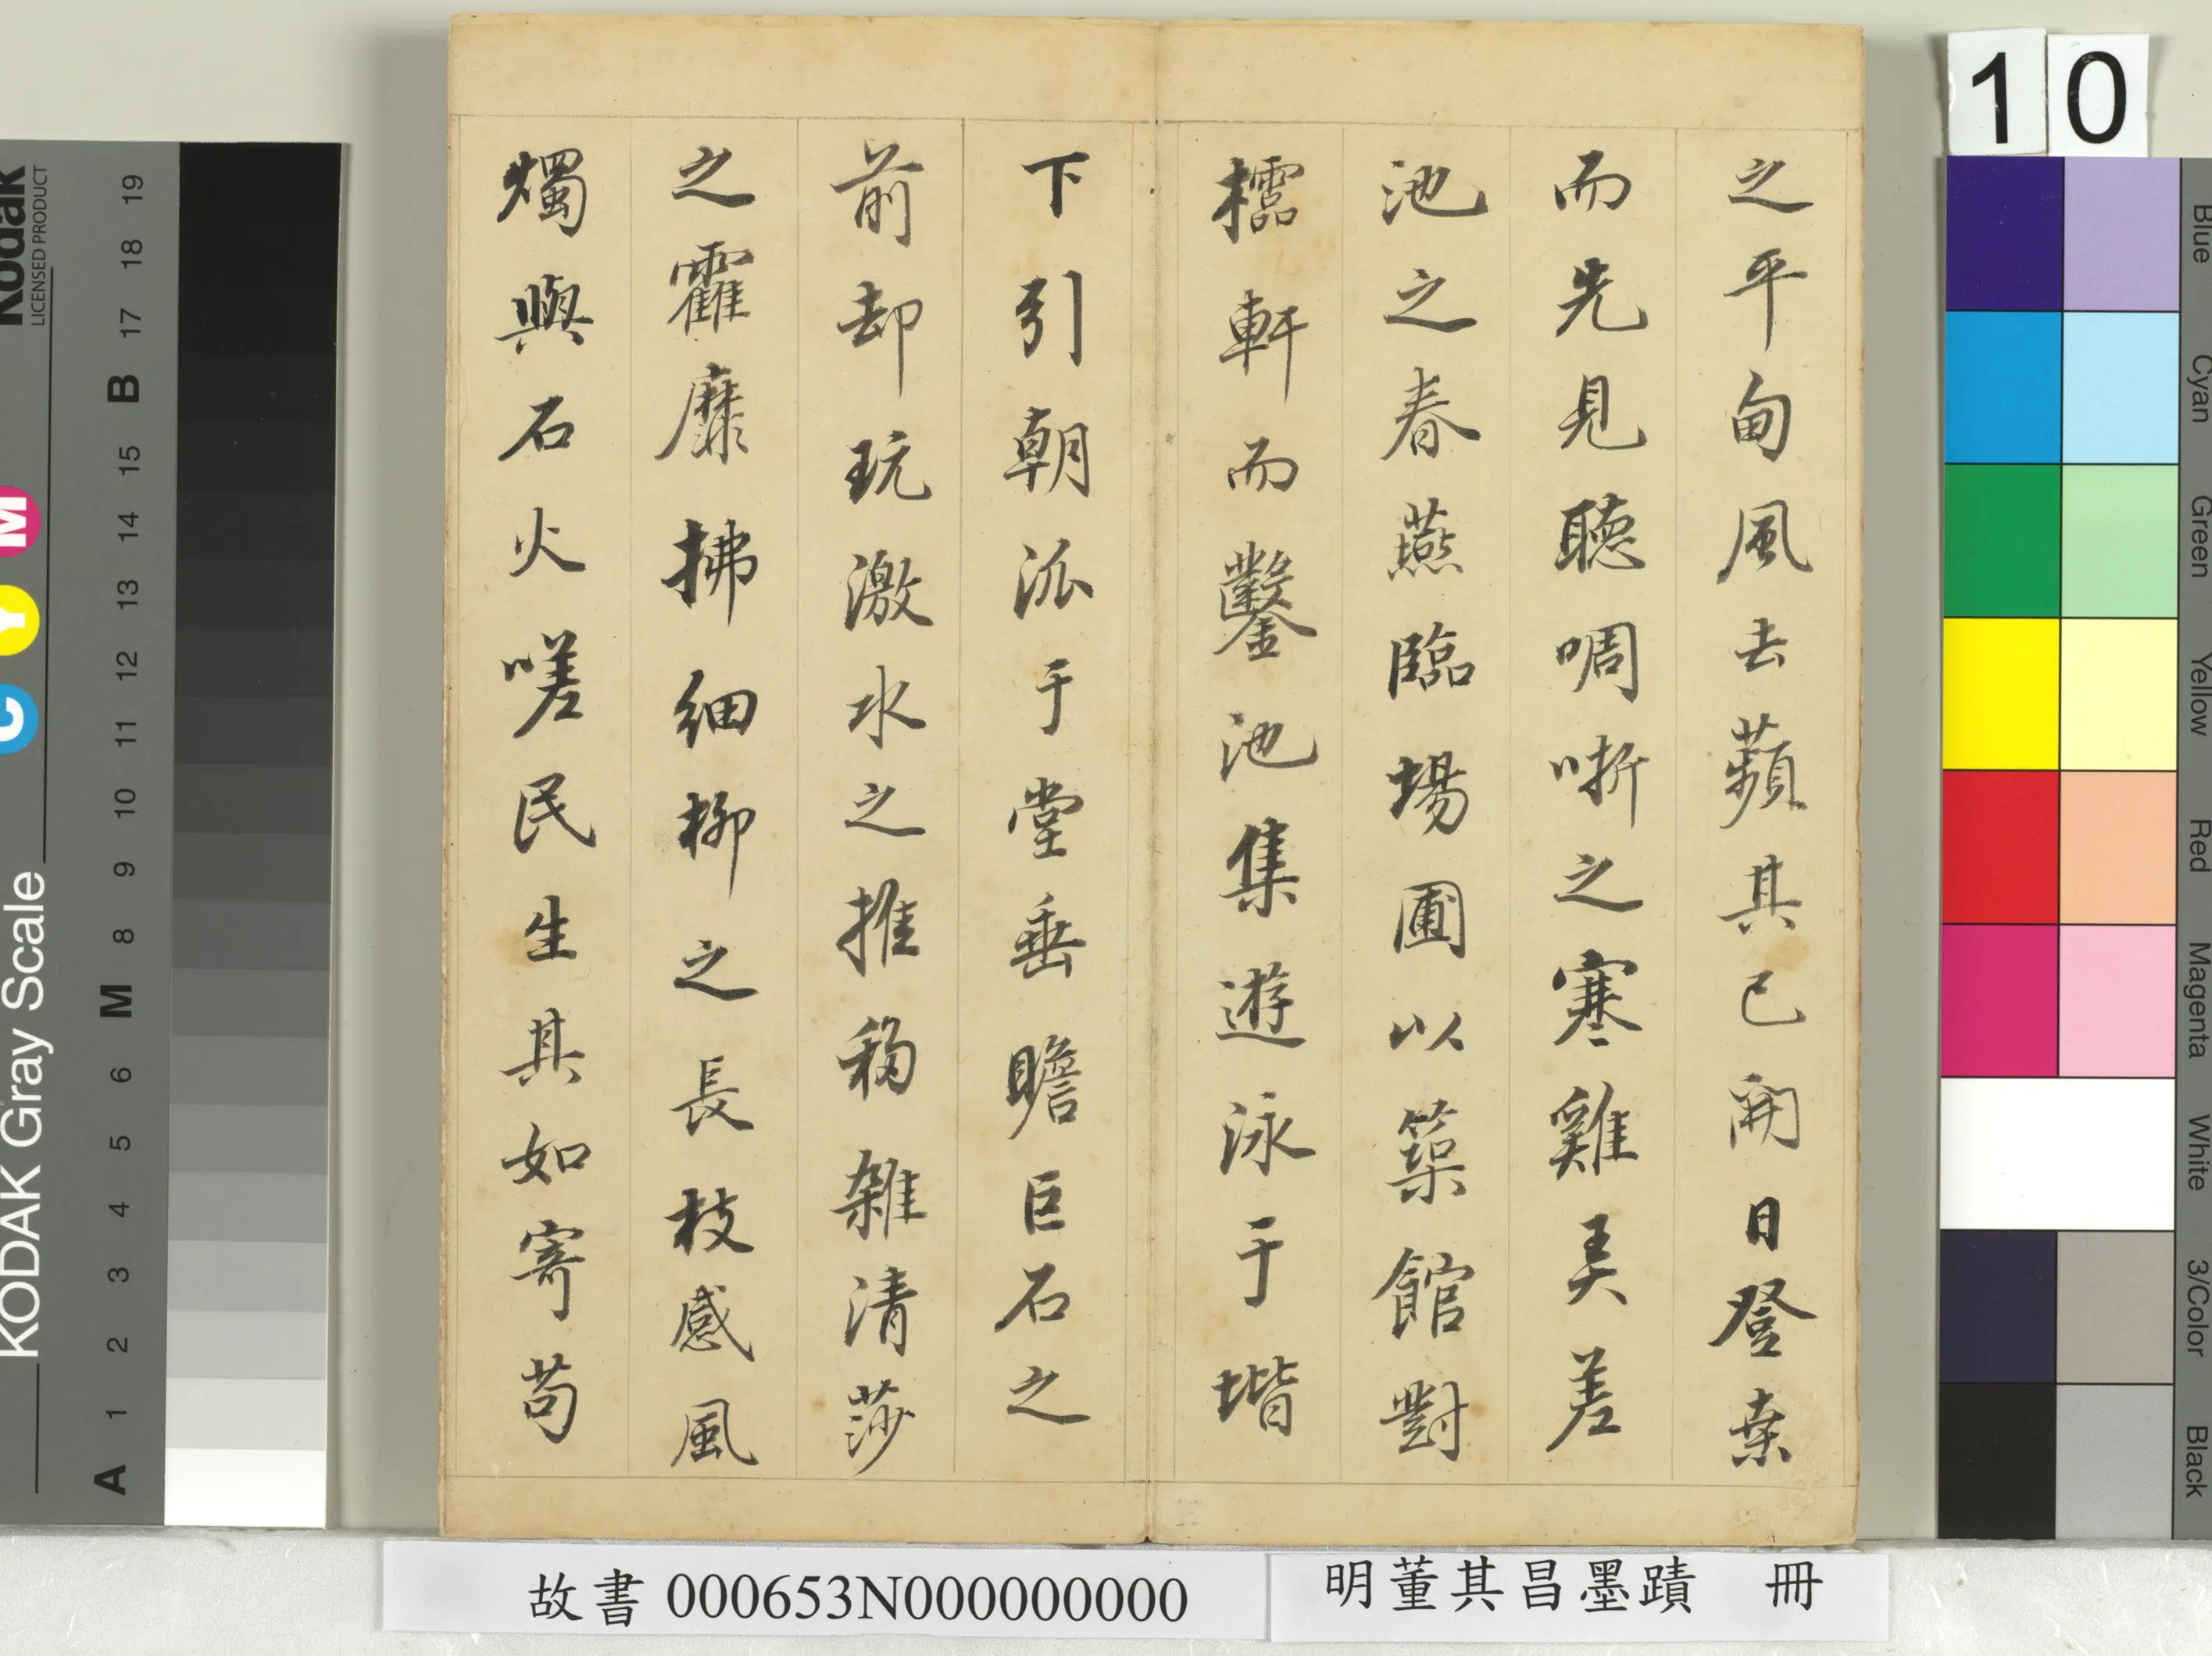 之平甸風去蘋其已開日登桒
而先見聽啁哳之寒雞美差
池之春燕臨場圃以築館對
櫺軒而鑿池集遊泳于堦
下引朝派于堂垂瞻巨石之
前却玩激水之推移雜清莎
之靃靡拂細柳之長枝感風
燭與石火嗟民生其如寄苟
10
故書 000653N000000000
明董其昌墨蹟 冊
Kodak
LICENSED PRODUCT
KODAK Gray Scale
C Y M
A 1 2 3 4 5 6 M 8 9 10 11 12 13 14 15 B 17 18 19
Blue
Cyan
Green
Yellow
Red
Magenta
White
3/Color
Black